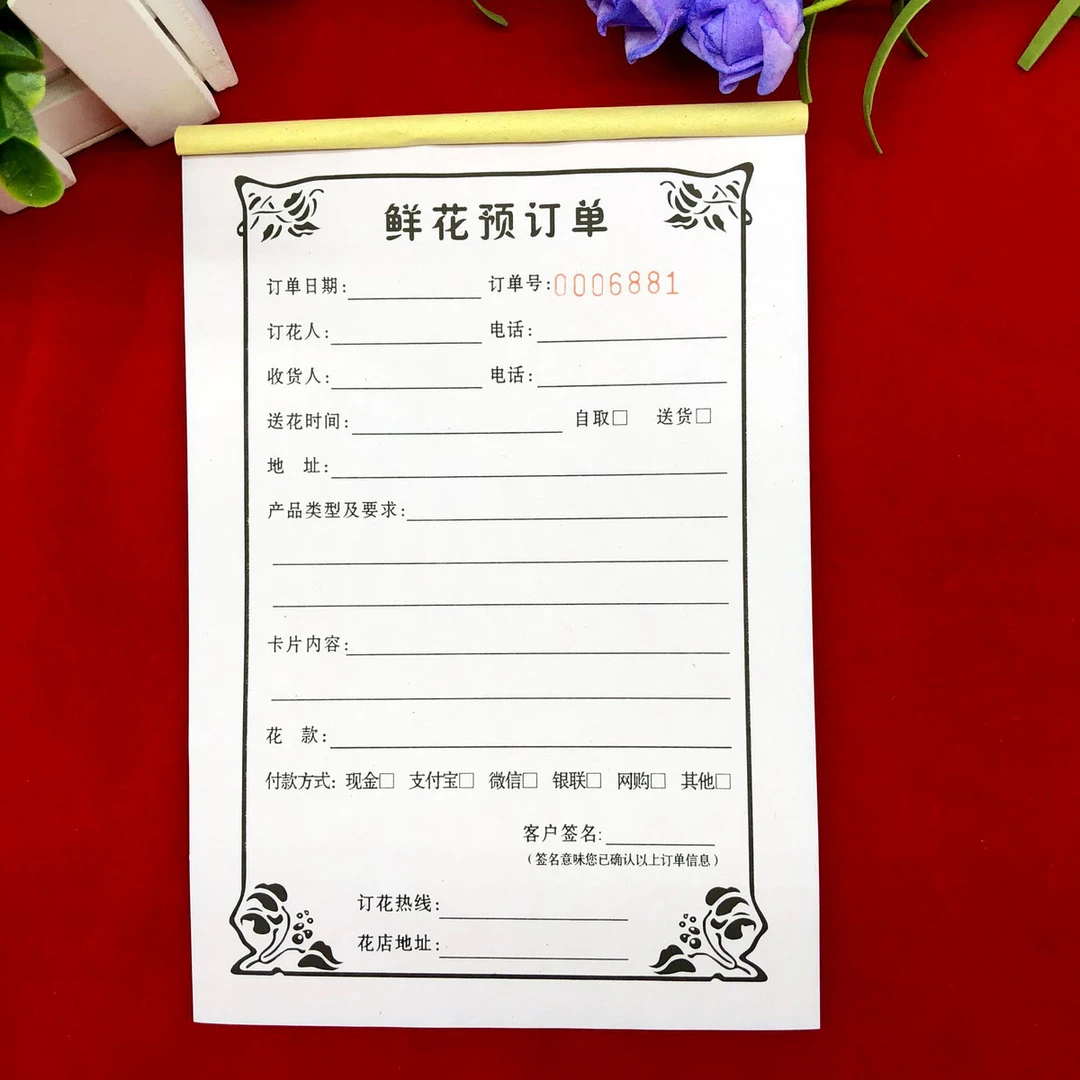 鲜花预订单
订单日期: 订单号:0006881
订花人: 电话:
收货人: 电话:
送花时间: 自取□ 送货□
地 址:
产品类型及要求:
卡片内容:
花 款:
付款方式: 现金□ 支付宝□ 微信□ 银联□ 网购□ 其他□
客户签名:
(签名意味您已确认以上订单信息)
订花热线:
花店地址: